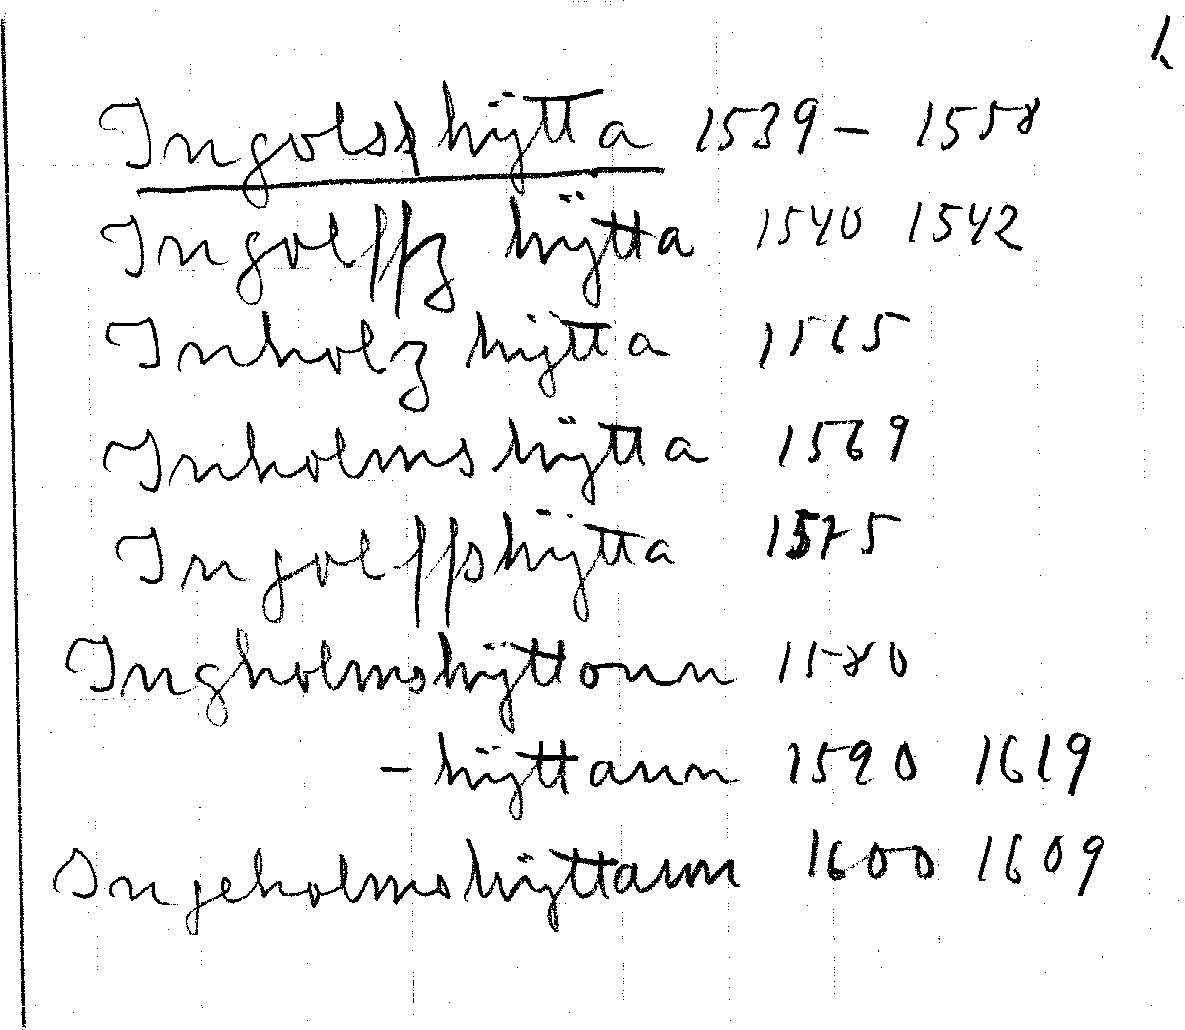 1.
Ingolsshÿtta 1539 – 1558
Ingolffz hÿtta 1540 1542
Inholz hÿtta 1565
Inholms hÿtta 1569
Ingolffshÿtta 1575
Ingholmshÿttonn 1580
– hÿttann 1590 1619
Ingeholmshÿttann 1600 1609